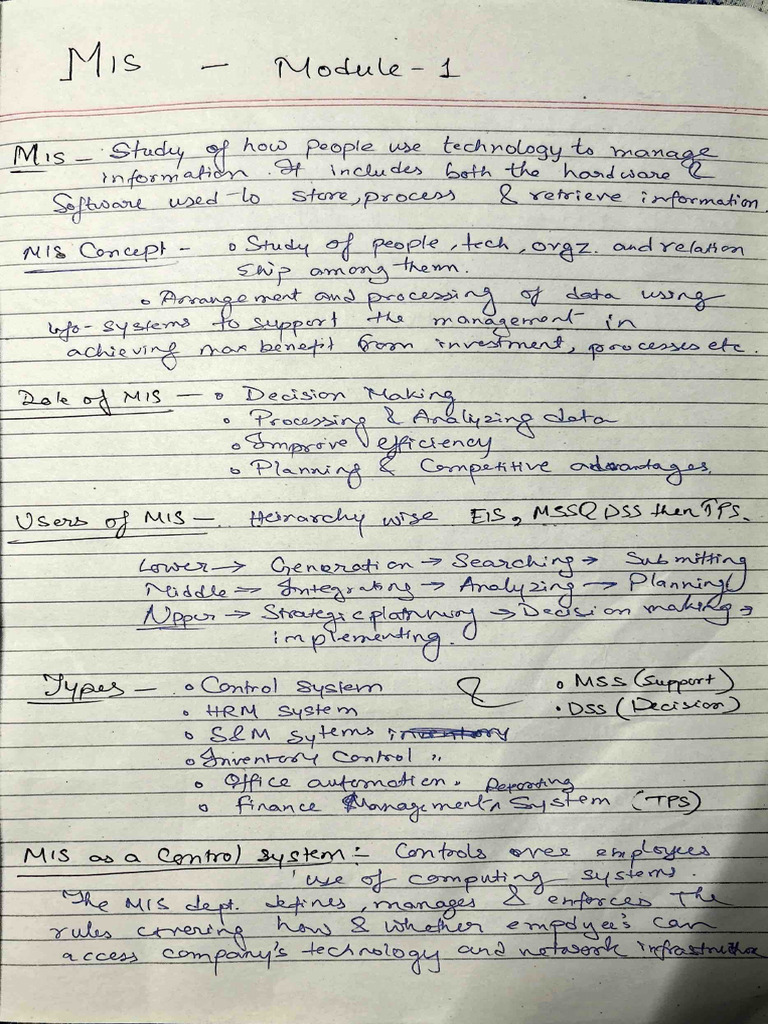 MIS - Module-1
MIS - Study of how people use technology to manage
information. It includes both the hardware &
Software used to store, process & retrieve information.
MIS Concept - o Study of people, tech, orgz. and relation
ship among them.
o Arrangement and processing of data using
Info-systems to support the management in
achieving max benefit from investment, processes etc.
Role of MIS - o Decision Making
o Processing & Analyzing data
o Improve efficiency
o Planning & Competitive advantages.
Users of MIS - Heirarchy wise EIS, MSS & DSS then TPS.
Lower → Generation → Searching → Submitting
Middle → Integrating → Analyzing → Planning
Upper → Strategic planning → Decision making →
implementing.
Types - o Control system & o MSS (Support)
o HRM System • DSS (Decision)
o S&M Sytems
o Inventory Control "
o Office automation "
o Finance Management Reporting System (TPS)
MIS as a Control system :- Controls over employees
use of computing systems.
The MIS dept. defines, manages & enforces The
rules covering how & whether employee's can
access company's technology and network infrastructure